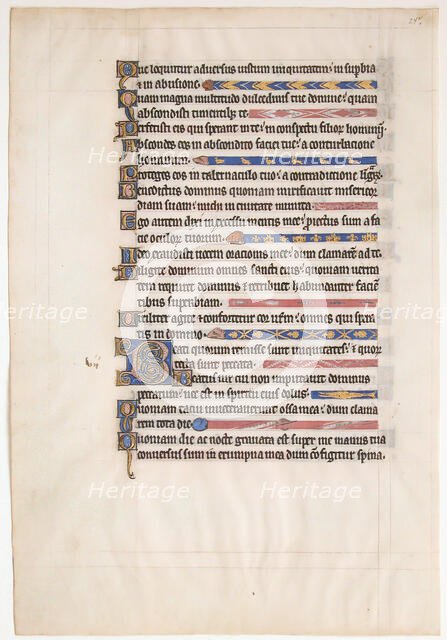 Que loquitur adversus iustum iniquitatem: in supbia
& in abusione.
Quam magna multitudo dulcedinis tue domine: quam
abscondisti timentib; te.
Perfecisti eis qui sperant in te: in conspectu filior hominū
Abscondes eos in abscondito faciei tue: a conturbatione
hominum.
Proteges eos in tabernaculo tuo: a contradictione
Benedictus dominus quoniam mirificavit misericor
diam suam: michi in civitate munita.
Ego autem dixi in excessu mentis mee: proiectus sum a fa
cie oculor tuorum.
Ideo exaudisti vocem orationis mee: dum clamarem ad te
Diligite dominum omnes sancti eius: quoniam verita
tem requiret dominus & retribuet habundanter facien
tibus superbiam.
Viriliter agite & confortetur cor vrm: omnes qui spera
tis in domino.
Beati quorum remisse sunt iniquitates: & quor
tecta sunt peccata.
Beatus vir cui non imputavit dominus
peccatum: nec est in spiritu eius dolus.
Quoniam tacui inveteraverunt ossa mea: dum clama
rem tota die.
Quoniam die ac nocte gravata est super me manus tua
conversus sum in erumpna mea dum configitur spina.
Heritage
Heritage
Heritage
Heritage
Heritage
Heritage